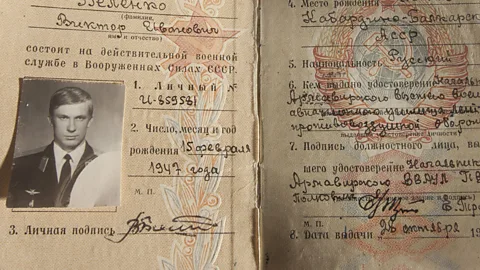 (фамилия,
Виктор Иванович
имя и отчество)
состоит на действительной военной
службе в Вооруженных Силах СССР.
1. Личный №
И-859581
2. Число, месяц и год
рождения 15 февраля
1947 года
М. П.
3. Личная подпись
4. Место рождения
Кабардино-Балкарск
АССР
5. Национальность Русский
6. Кем выдано удостоверение Начальник
Армавирского высшего воен
авиационного училища
противовоздушной оборон
7. Подпись должностного лица, вы
шего удостоверение Начальник
Армавирского ВВАУЛ П
Полковник
М. П.
8. Дата выдачи 26 октября 19